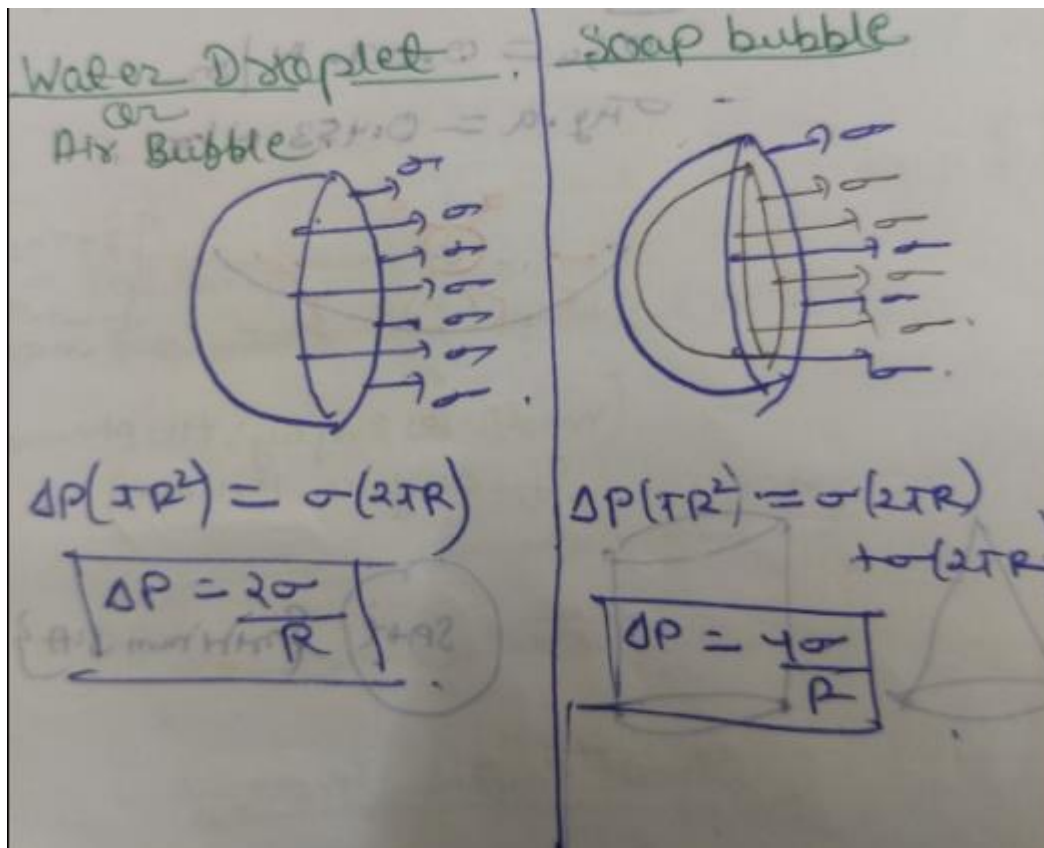 Water Droplet
or
Air Bubble
σ
σ
σ
σ
σ
σ
σ
ΔP(πR²) = σ(2πR)
ΔP = 2σ/R
Soap bubble
σ
σ
σ
σ
σ
σ
σ
σ
ΔP(πR²) = σ(2πR)
+σ(2πR)
ΔP = 4σ/R